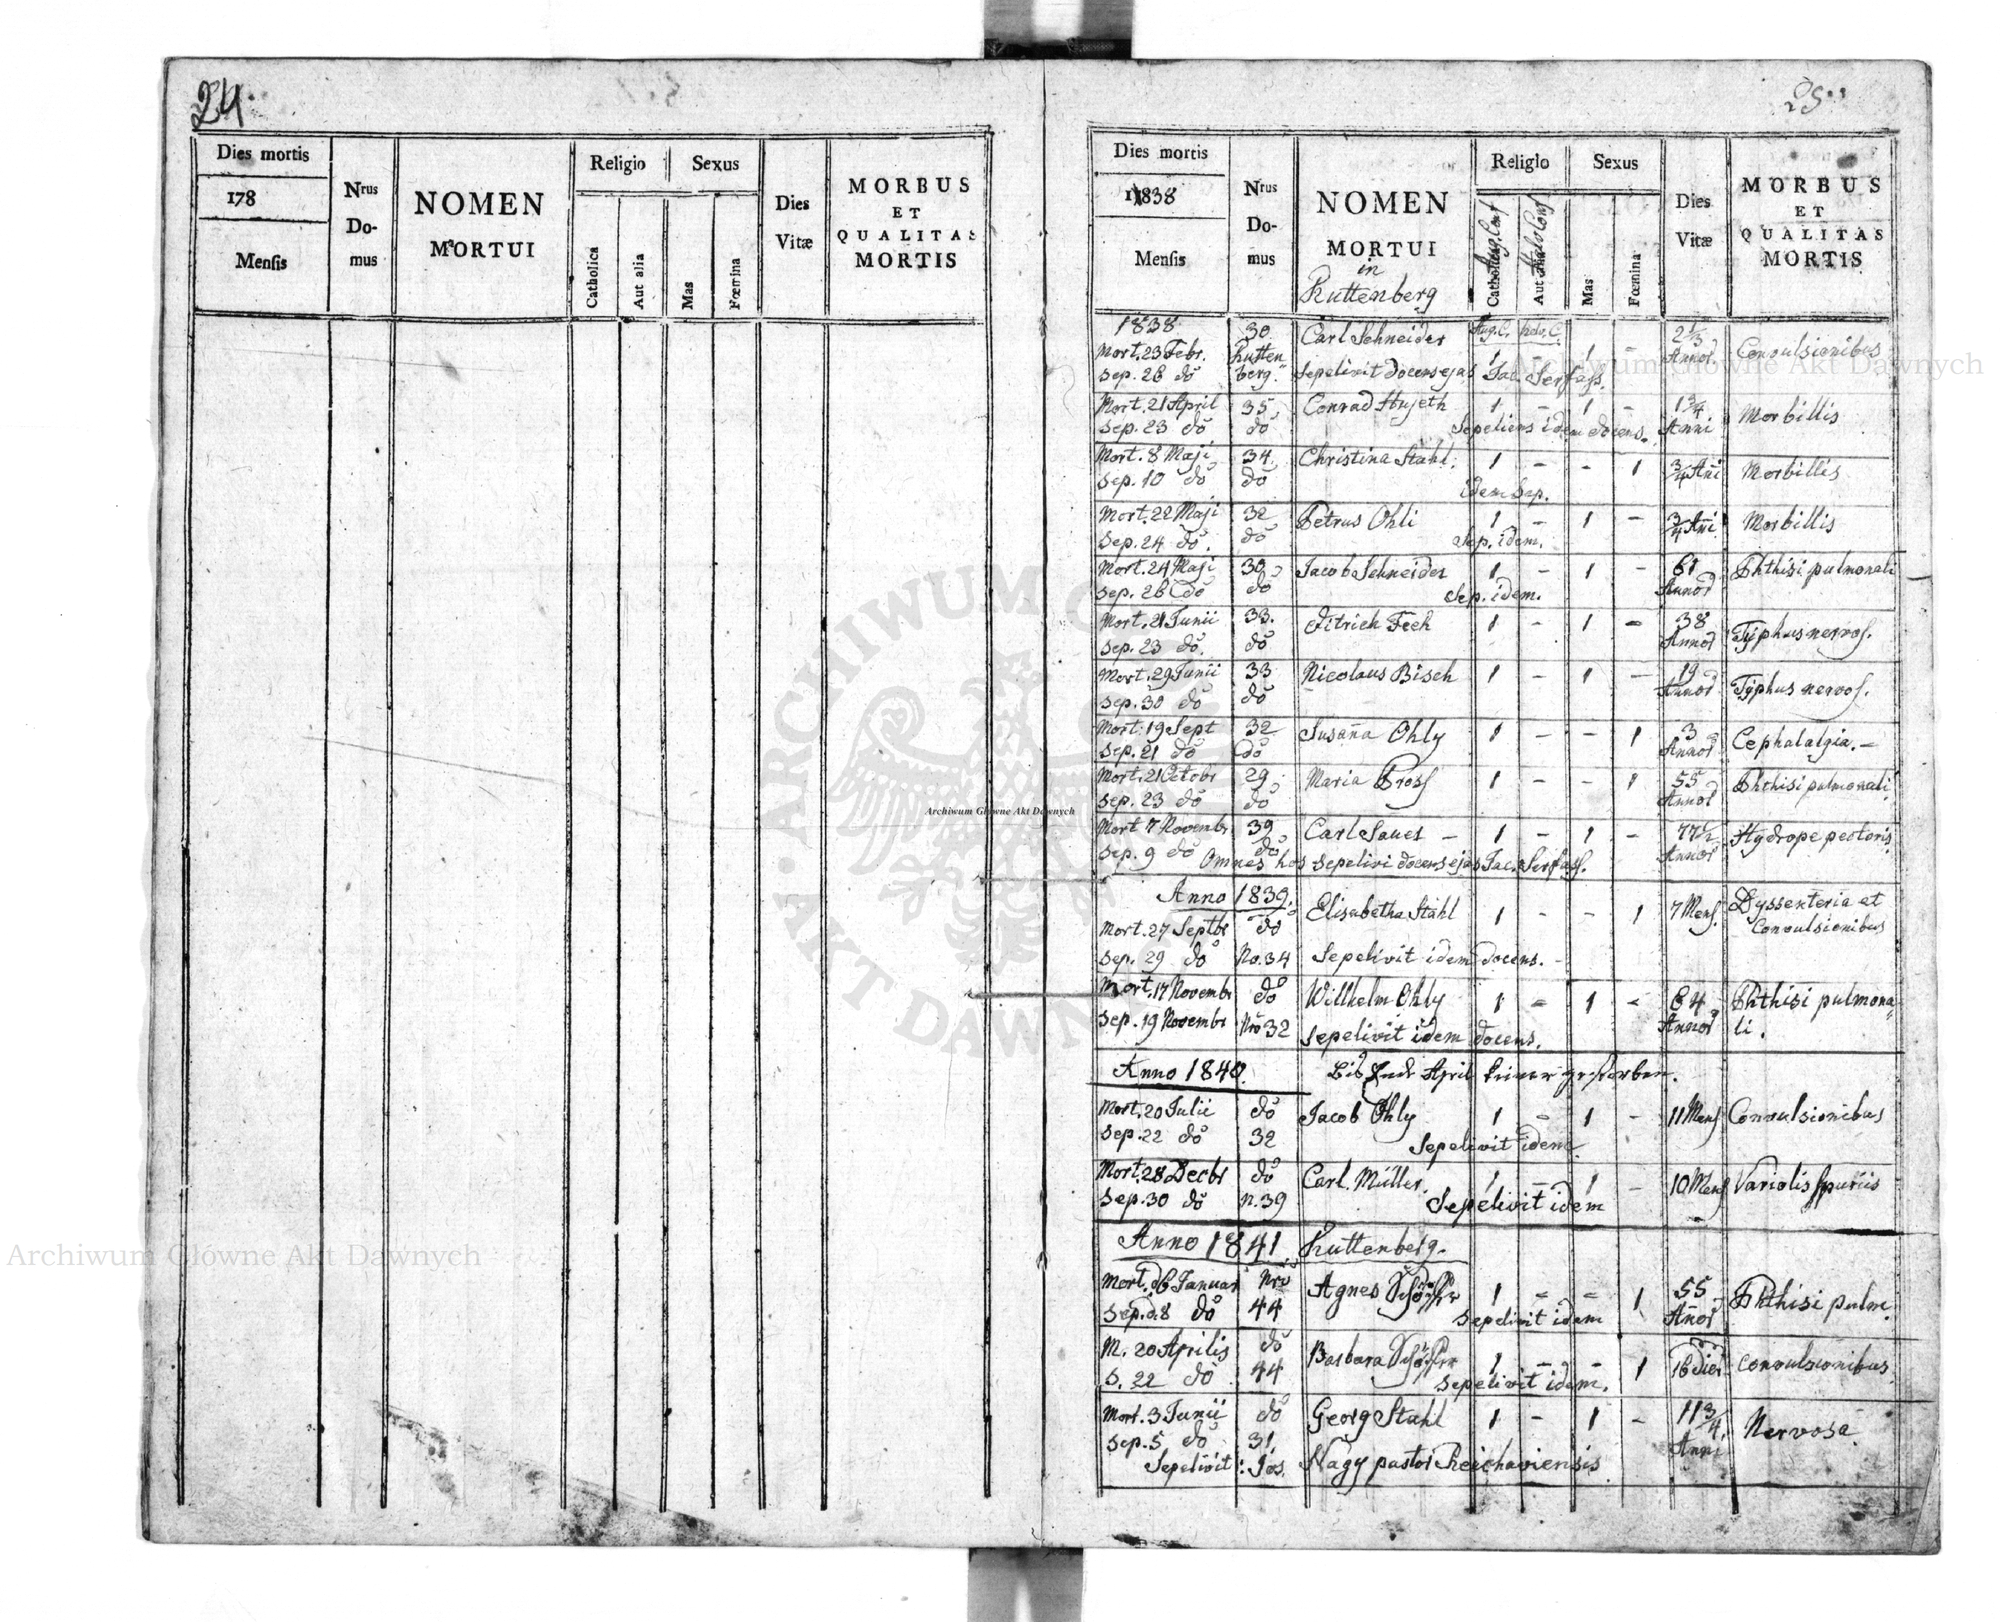 24.
Dies mortis
178
Mensis
Nrus
Do-
mus
NOMEN
MORTUI
Religio
Catholica
Aut alia
Sexus
Mas
Fœmina
Dies
Vitæ
MORBUS
ET
QUALITAS
MORTIS
25
Dies mortis
1838
Mensis
Nrus
Do-
mus
NOMEN
MORTUI
in
Ruttenberg
Religio
Catholica Aug. Conf
Aut alia Helv Conf
Sexus
Mas
Fœmina
Dies
Vitæ
MORBUS
ET
QUALITAS
MORTIS
1838 30. Carl Schneider Aug. C. Helv. C. 2 1/3
Mort. 23 Febr. Rutten 1 - 1 - Annor. Convulsionibus
Sep. 26 do berg. Sepelivit docens ejas Jac. Serfass.
Mort. 21 April 35, Conrad 1 - 1 - 1 3/4 Morbillis
Sep. 23 do do Sepeliens idem docens. Anni
Mort. 8 Maji 34, Christina Stahl. 1 - - 1 3/4 Ani Morbillis
Sep. 10 do do Idem Sep.
Mort. 22 Maji 32 Petrus Ohli 1 - 1 - 3/4 Ani. Morbillis
Sep. 24 do. do Sep. idem.
Mort. 24 Maji 30, Jacob Schneider 1 - 1 - 61 Phthisi pulmonali
Sep. 26 do do Sep. idem. Annor
Mort. 21 Junii 33. Ditrich Fech 1 - 1 - 38 Typhus nervos.
Sep. 23 do. do Annor
Mort. 29 Junii 33 Nicolaus Bisch 1 - 1 - 19 Typhus nervos.
Sep. 30 do do Annor
Mort. 19 Sept 32 Susana Ohly 1 - - 1 3 Cephalalgia. -
Sep. 21 do do Annor
Mort. 21 Octobr 29. Maria Pross 1 - - 1 55 Phthisi pulmonali
Sep. 23 do do Annor
Mort 7 Novembr 39 Carl Sauer - 1 - 1 - 77 1/2 Hydrope pectoris
Sep. 9 do do Omnes hos sepelivi docens ejas Jac. Serfass. Annor
Anno 1839. Elisabetha Stahl 1 - - 1 7 Mens. Dyssenteria et
Mort. 27 Septbr do Convulsionibus
Sep. 29 do No. 34 Sepelivit idem docens. -
Mort. 17 Novembr do Willhelm Ohly 1 - 1 - 64 Phthisi pulmona
Sep. 19 Novembr Nro 32 Sepelivit idem docens. Annor li.
Anno 1840. Bis Ende April keiner gestorben.
Mort. 20 Julii do Jacob Ohly 1 - 1 - 11 Mens Convulsionibus
Sep. 22 do 32 Sepelivit idem
Mort. 28 Decbr do Carl. Müller. 1 - 1 - 10 Mens Variolis spuriis
Sep. 30 do n. 39 Sepelivit idem
Anno 1841. Ruttenberg.
Mort. 26 Januar Nro Agnes 1 - - 1 55 Phthisi pulm.
Sep. 28 do 44 Sepelivit idem Anor
M. 20 Aprilis do Barbara 1 - - 1 16 dier. Convulsionibus.
S. 22 do 44 Sepelivit idem.
Mort. 3 Junii do Georg Stahl 1 - 1 - 11 3/4. Nervosa
Sep. 5 do 31. Anni
Sepelivit: Jos. Nagy pastor Reichaviensis
ARCHIWUM GŁÓWNE AKT DAWNYCH
Archiwum Główne Akt Dawnych
Archiwum Główne Akt Dawnych
Archiwum Główne Akt Dawnych